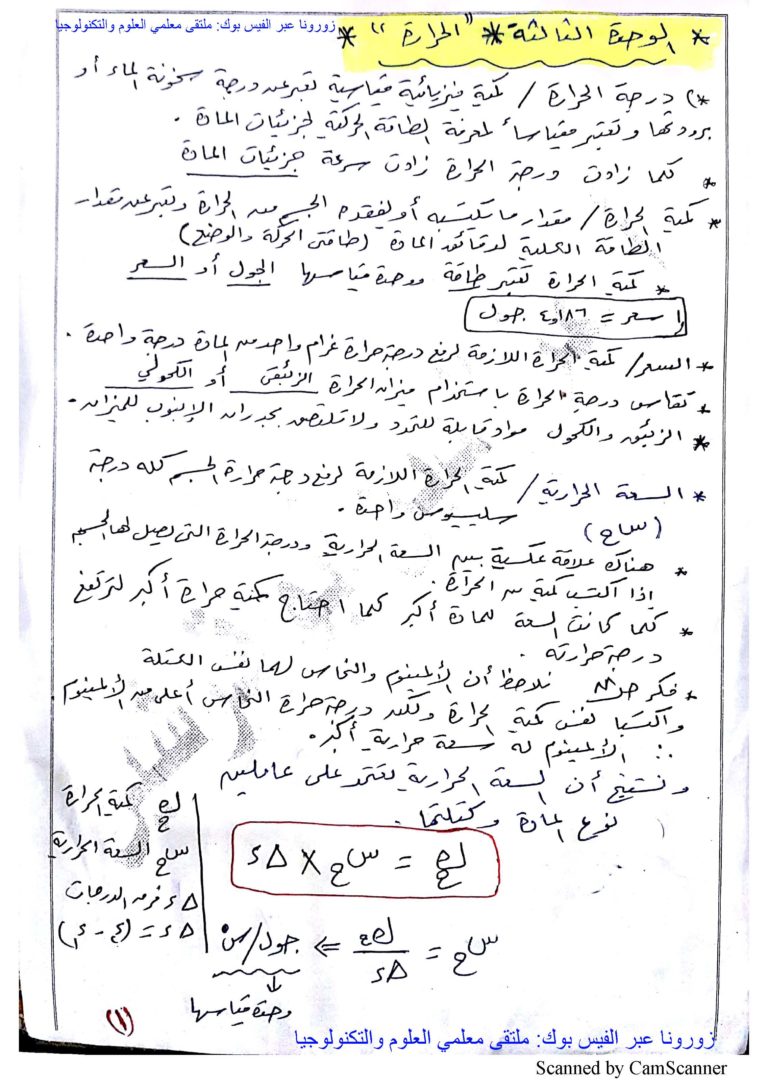 زورونا عبر الفيس بوك: ملتقى معلمي العلوم والتكنولوجيا
* الوحدة الثالثة * "الحرارة" *
*) درجة الحرارة / كمية فيزيائية قياسية تعبر عن درجة سخونة الماء أو
برودتها وتعتبر مقياساً لمعرفة الطاقة الحركية لجزيئات المادة .
* كلما زادت درجة الحرارة زادت سرعة جزيئات المادة
* كمية الحرارة / مقدار ما يكتسبه أو يفقده الجسم من الحرارة وتعبر عن مقدار
الطاقة الكلية لدقائق المادة (طاقتي الحركة والوضع)
* كمية الحرارة تعتبر طاقة ووحدة قياسها الجول أو السعر
١ سعر = ٤,١٨٦ جول
* السعر / كمية الحرارة اللازمة لرفع درجة حرارة غرام واحد من المادة درجة واحدة .
* تقاس درجة الحرارة باستخدام ميزان الحرارة الزئبقي أو الكحولي
* الزئبق والكحول مواد قابلة للتمدد ولا تلتصق بجدران الانبوب للميزان .
* السعة الحرارية / كمية الحرارة اللازمة لرفع درجة حرارة الجسم كله درجة
سيليسيوس واحدة .
(سح)
* هناك علاقة عكسية بين السعة الحرارية ودرجة الحرارة التي يصل لها الجسم
إذا اكتسب كمية من الحرارة .
* كلما كانت السعة للمادة أكبر كلما احتاج كمية حرارة أكبر لترتفع
درجة حرارته .
* فكر ص نلاحظ أن الألمنيوم والنحاس لهما نفس الكتلة
واكتسبا نفس كمية الحرارة ولكن درجة حرارة النحاس أعلى من الألمنيوم .
∴ الألمنيوم له سعة حرارية أكبر .
ونستنتج أن السعة الحرارية تعتمد على عاملين
نوع المادة وكتلتها .
كح كمية الحرارة
سح السعة الحرارية
Δد فرق الدرجات
Δد = (د٢ - د١)
كح = سح × Δد
سح = كح / Δد ⇐ جول/س°
↓
وحدة قياسها
(١)
زورونا عبر الفيس بوك: ملتقى معلمي العلوم والتكنولوجيا
Scanned by CamScanner